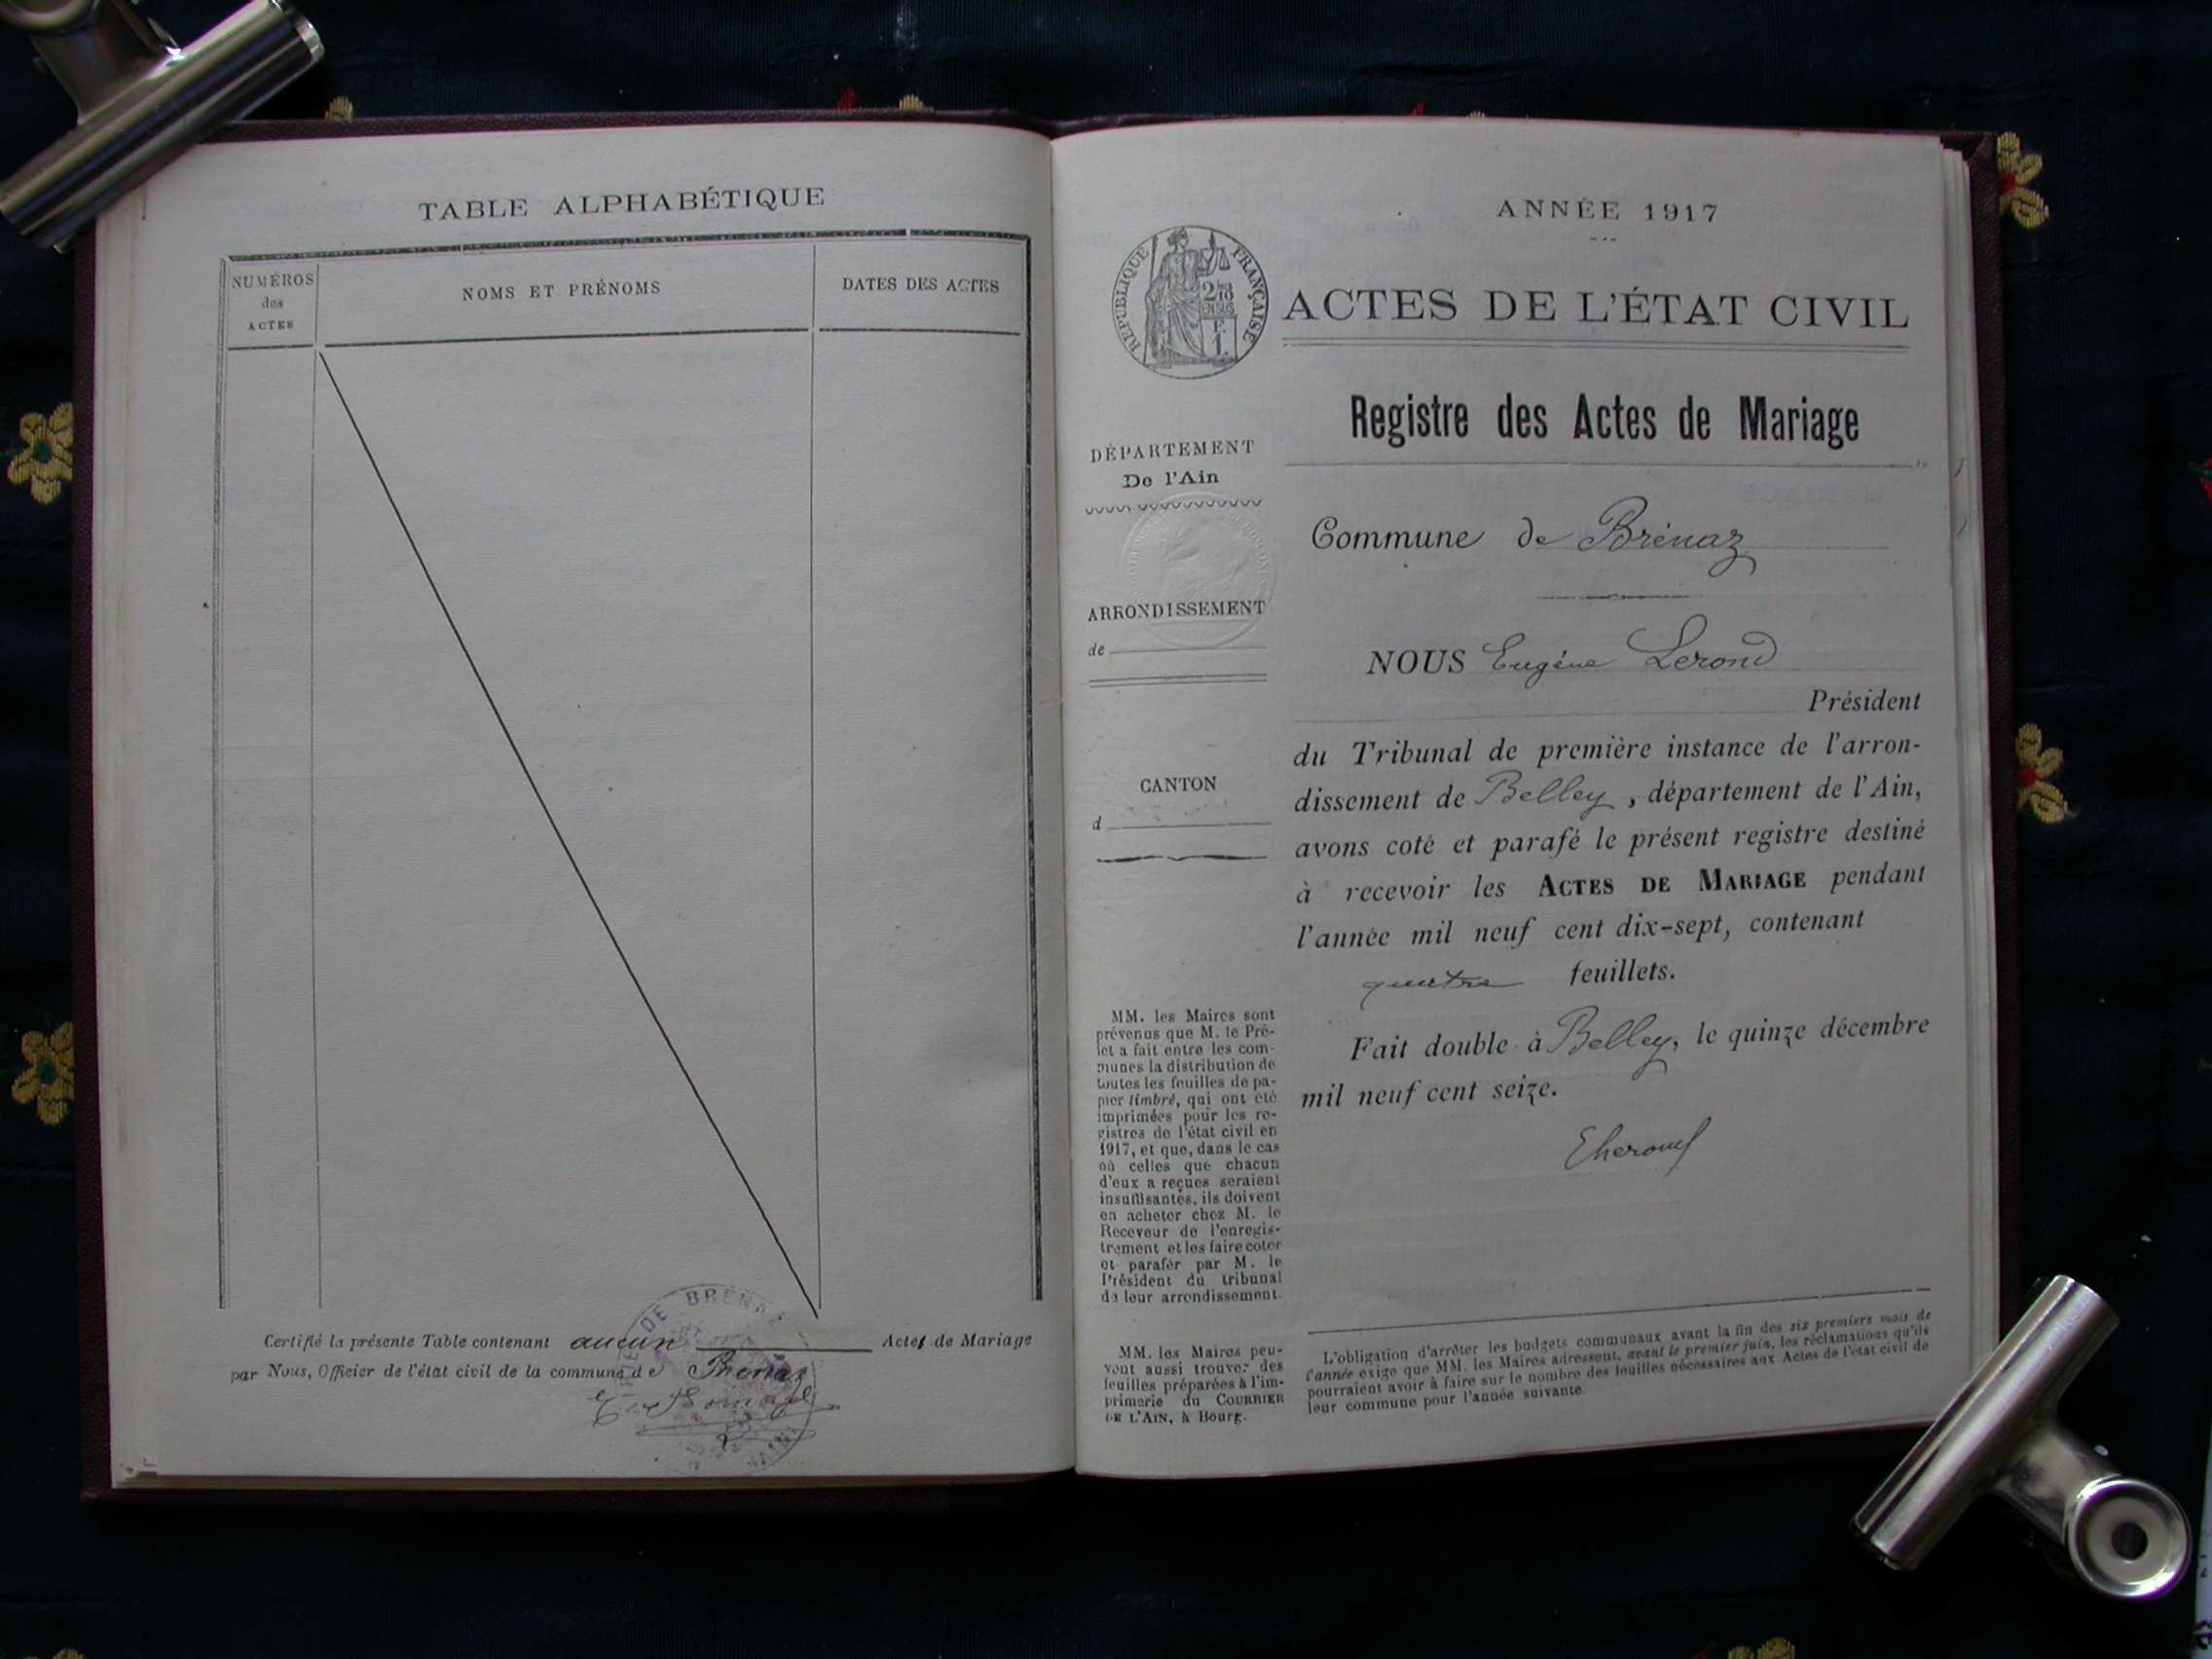 TABLE ALPHABÉTIQUE
NUMÉROS
des
ACTES
NOMS ET PRÉNOMS
DATES DES ACTES
Certifié la présente Table contenant aucun Actes de Mariage
par Nous, Officier de l'état civil de la commune de Brénaz
DE BRÉNAZ
ANNÉE 1917
RÉPUBLIQUE FRANÇAISE
2/10
EN SUS
F.
1.
ACTES DE L'ÉTAT CIVIL
Registre des Actes de Mariage
DÉPARTEMENT
De l'Ain
Commune de Brénaz
ARRONDISSEMENT
de
NOUS Eugéne Lerond
Président
du Tribunal de première instance de l'arron-
dissement de Belley, département de l'Ain,
avons coté et parafé le présent registre destiné
à recevoir les ACTES DE MARIAGE pendant
l'année mil neuf cent dix-sept, contenant
quatre feuillets.
Fait double à Belley, le quinze décembre
mil neuf cent seize.
CANTON
d
MM. les Maires sont
prévenus que M. le Pré-
fet a fait entre les com-
munes la distribution de
toutes les feuilles de pa-
pier timbré, qui ont été
imprimées pour les re-
gistres de l'état civil en
1917, et que, dans le cas
où celles que chacun
d'eux a reçues seraient
insuffisantes, ils doivent
en acheter chez M. le
Receveur de l'enregis-
trement et les faire coter
et parafer par M. le
Président du tribunal
de leur arrondissement.
MM. les Maires peu-
vent aussi trouver des
feuilles préparées à l'im-
primerie du COURRIER
DE L'AIN, à Bourg.
L'obligation d'arrêter les budgets communaux avant la fin des six premiers mois de
l'année exige que MM. les Maires adressent, avant le premier juin, les réclamations qu'ils
pourraient avoir à faire sur le nombre des feuilles nécessaires aux Actes de l'état civil de
leur commune pour l'année suivante.